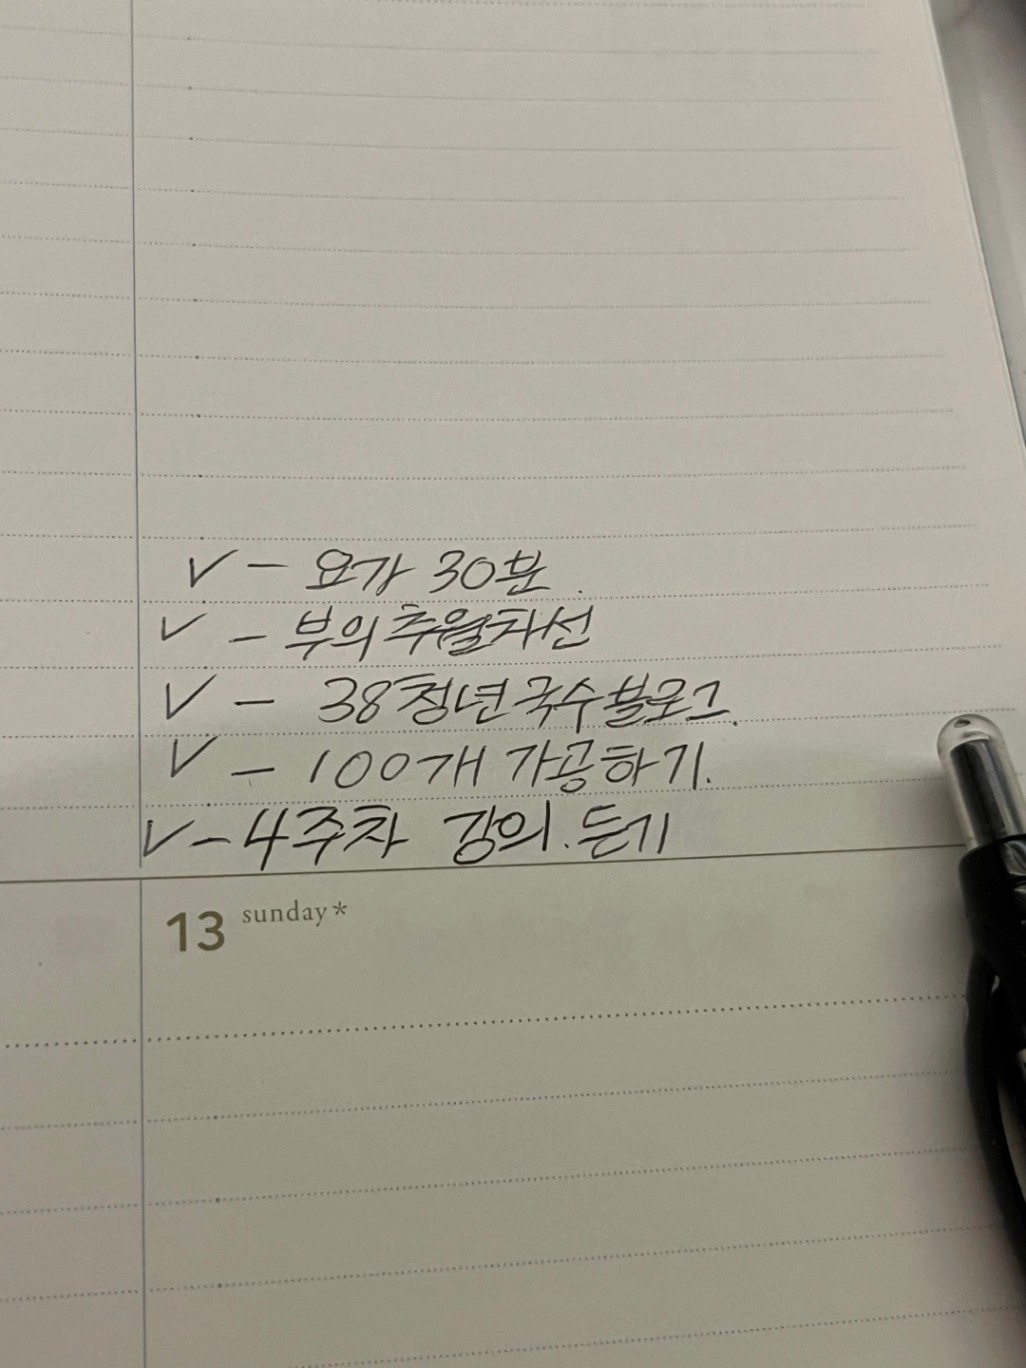 ✓ - 요가 30분.
✓ - 부의 추월차선
✓ - 38청년국수블로그.
✓ - 100개 가공하기.
✓ - 4주차 강의.듣기
13 sunday*